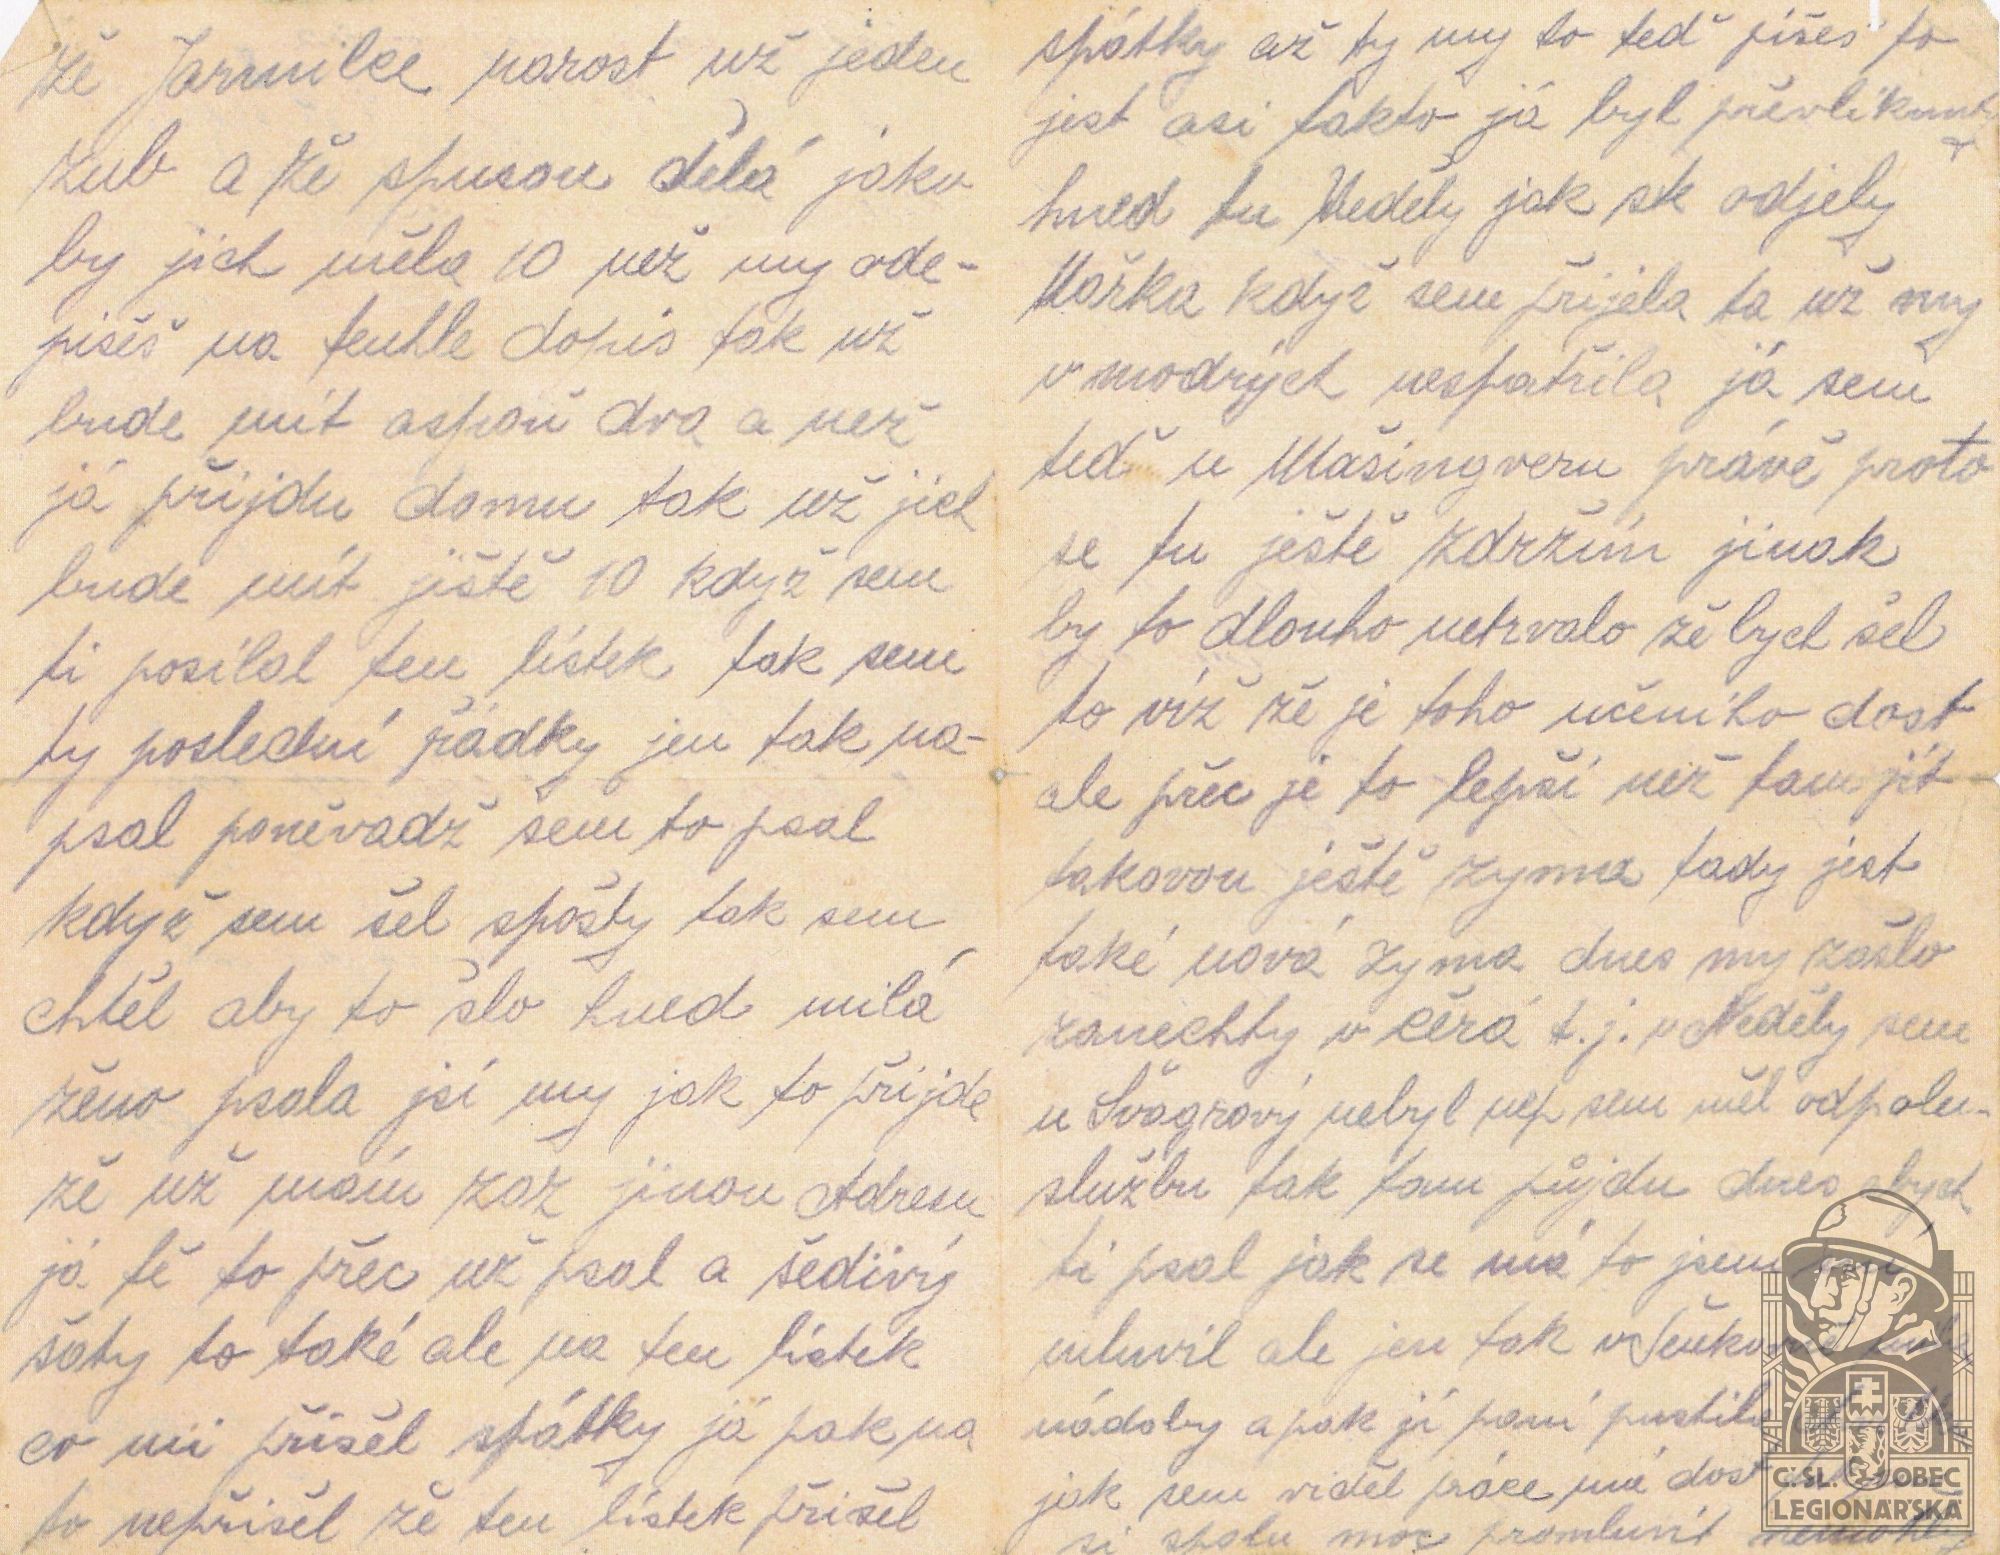 že Jarmilce narost už jeden
zub a že spusou dělá jako
by jich měla 10 než my ode-
pišeš na tenhle dopis tak už
bude mít aspoň dva a než
já přijdu domu tak už jich
bude mít jiště 10 když sem
ti posílal ten lístek tak sem
ty poslední řádky jen tak na-
psal poněvadž sem to psal
když sem šel spošty tak sem
chtěl aby to šlo hned milá
ženo psala jsi my jak to přijde
že už mám zaz jinou Adresu
já tě to přec už psal a šedivý
šaty to také ale na ten lístek
co mi přišel spátky já pak na
to nepřišel že ten lístek přišel
spátky až ty my to teď píšeš to
jest asi takto já byl převlíknuty
hned tu Neděly jak sk odjely
Mařka když sem přijela ta už my
v modrých nespatřila já sem
teď u Mašingveru právě proto
se tu ještě zdržím jinak
by to dlouho netrvalo že bych šel
to víž že je toho učeního dost
ale přec je to lepší než tam jít
takovou ještě zyma tady jest
také nová zyma dnes my zašlo
zanechty v čérá t.j. v Neděly sem
u Švagrový nebyl nep sem měl odpolu-
službu tak tam půjdu dnes abych
ti psal jak se má to jsem
mluvil ale jen tak
nádoby a pak jí paní pustila
jak sem viděl práce má dost
si spolu moc promluvit nemohly
ČSL. OBEC
LEGIONÁŘSKÁ